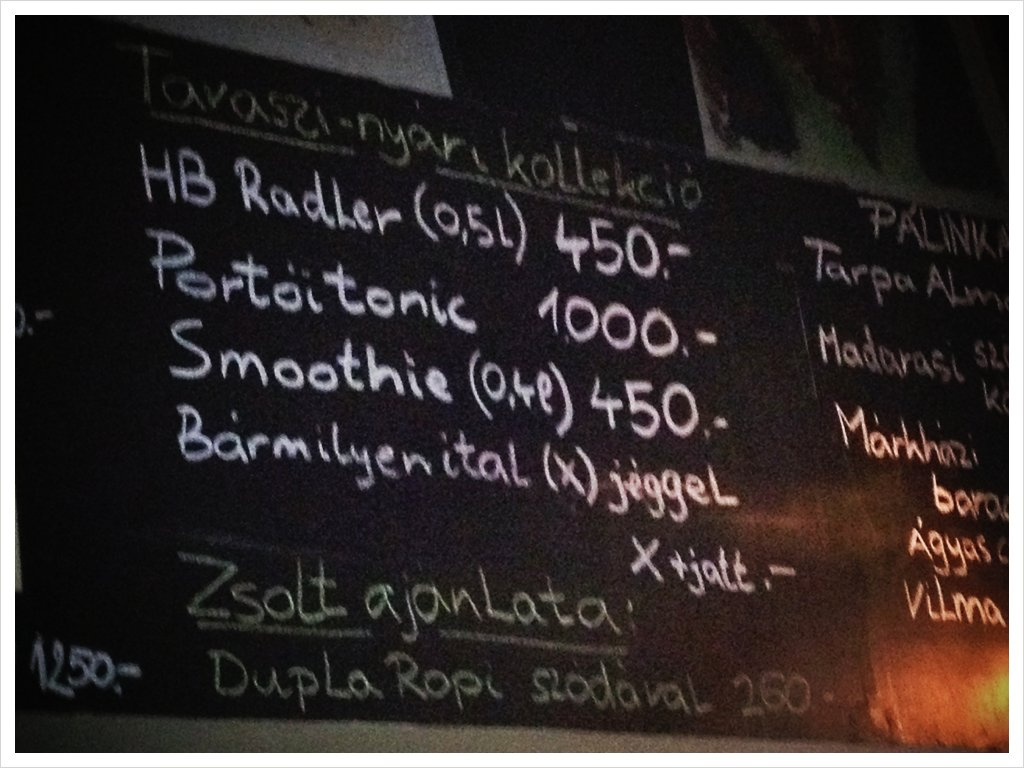 Tavaszi-nyári kollekció
HB Radler (0,5l) 450.-
Portóitonic 1000.-
Smoothie (0,4l) 450.-
Bármilyen ital (x) jéggel
X+jatt.-
Zsolt ajánlata:
Dupla Ropi szódával 260.
1250.-
PÁLINKA
Tarpa Alma
Madarasi
Márkházi
Ágyas
Vilma